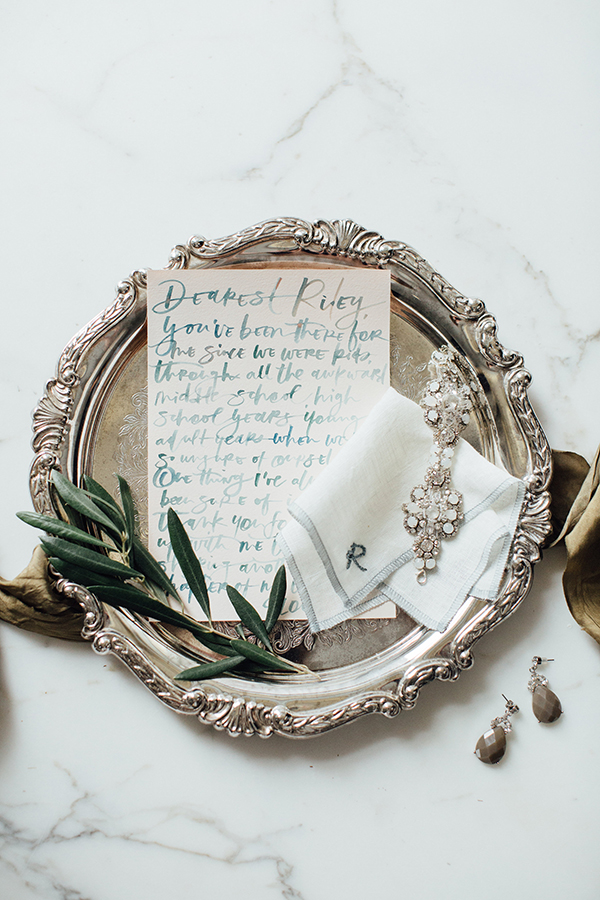 Dearest Riley,
you've been there for
me since we were kids,
through all the awkward
middle school, high
school years, young
adult years when we
so unsure of oursel
One thing I've al
been sure of i
Thank you fo
up with me
R